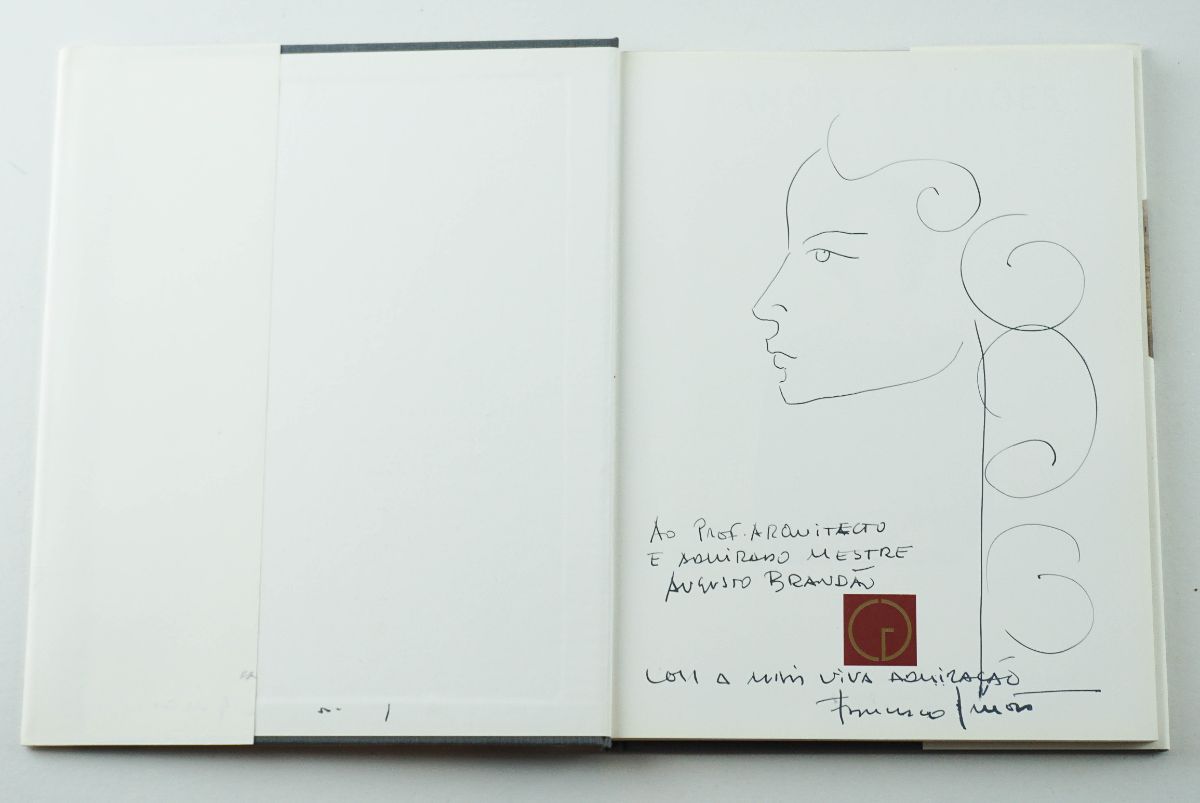 Ao Prof. Arquitecto
e admirado Mestre
Augusto Brandão
com a mais viva admiração
Francisco Simões